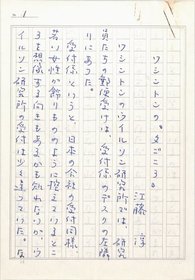 ワシントンの"まごころ"
江藤 淳
ワシントンのウイルソン研究所では、研究
員たちの郵便受けは、受付係のデスクの左隣
りにあった。
受付係というと、日本の会社の受付同様、
若い女性が飾りもののように控えているとこ
ろを想像する向きもあるかも知れないが、ウ
イルソン研究所の受付は少々違っていた。